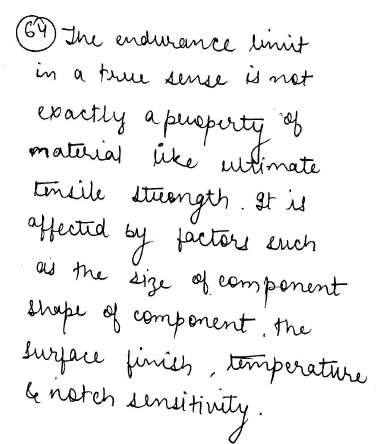 64 The endurance limit
in a true sense is not
exactly a property of
material like ultimate
tensile strength. It is
affected by factors such
as the size of component
shape of component, the
surface finish, temperature
& notch sensitivity.